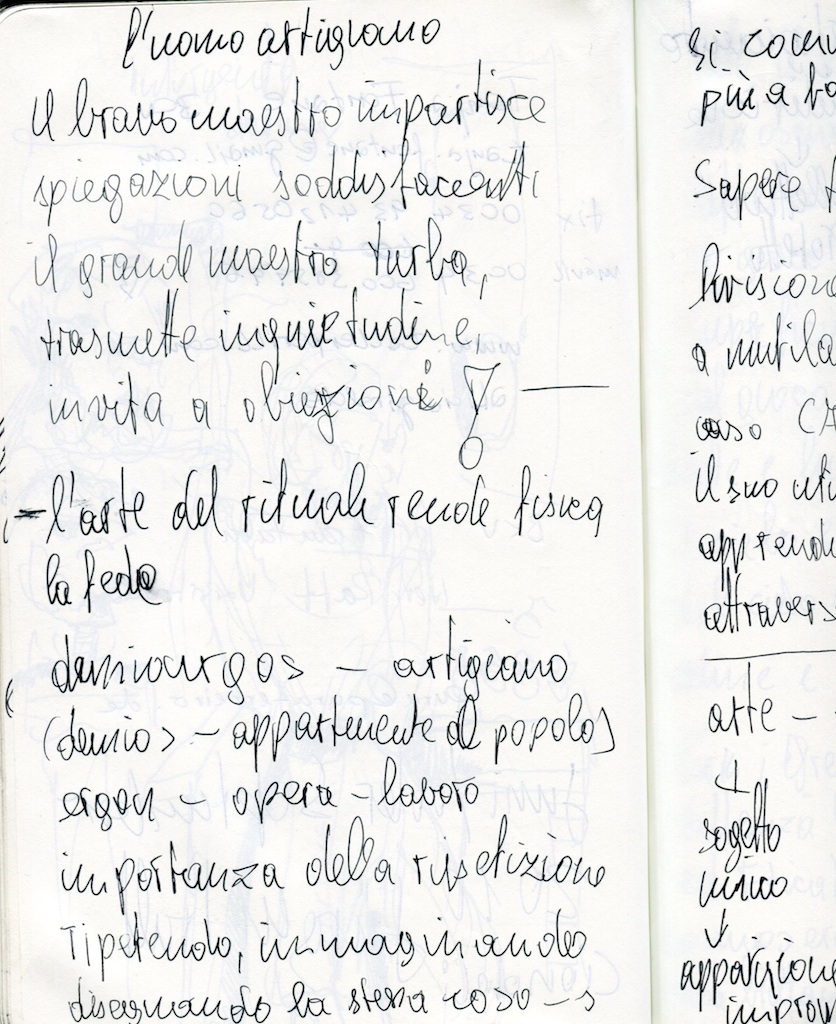 l'uomo artigiano
Il bravo maestro impartisce
spiegazioni soddisfacenti
il grande maestro turba,
trasmette inquietudine,
invita a obiezioni! —
- l'arte del rituale rende fisica
la fede
demiourgos — artigiano
(demios — appartenente al popolo)
ergon — opera — lavoro
importanza della ripetizione
ripetendo, immaginando
disegnando la stessa cosa — s
si
più a
Sapere
Divisione
a mutila
caso CA
il suo
apprende
attravers
arte —
↓
sogetto
unico
↓
apparizione
improv